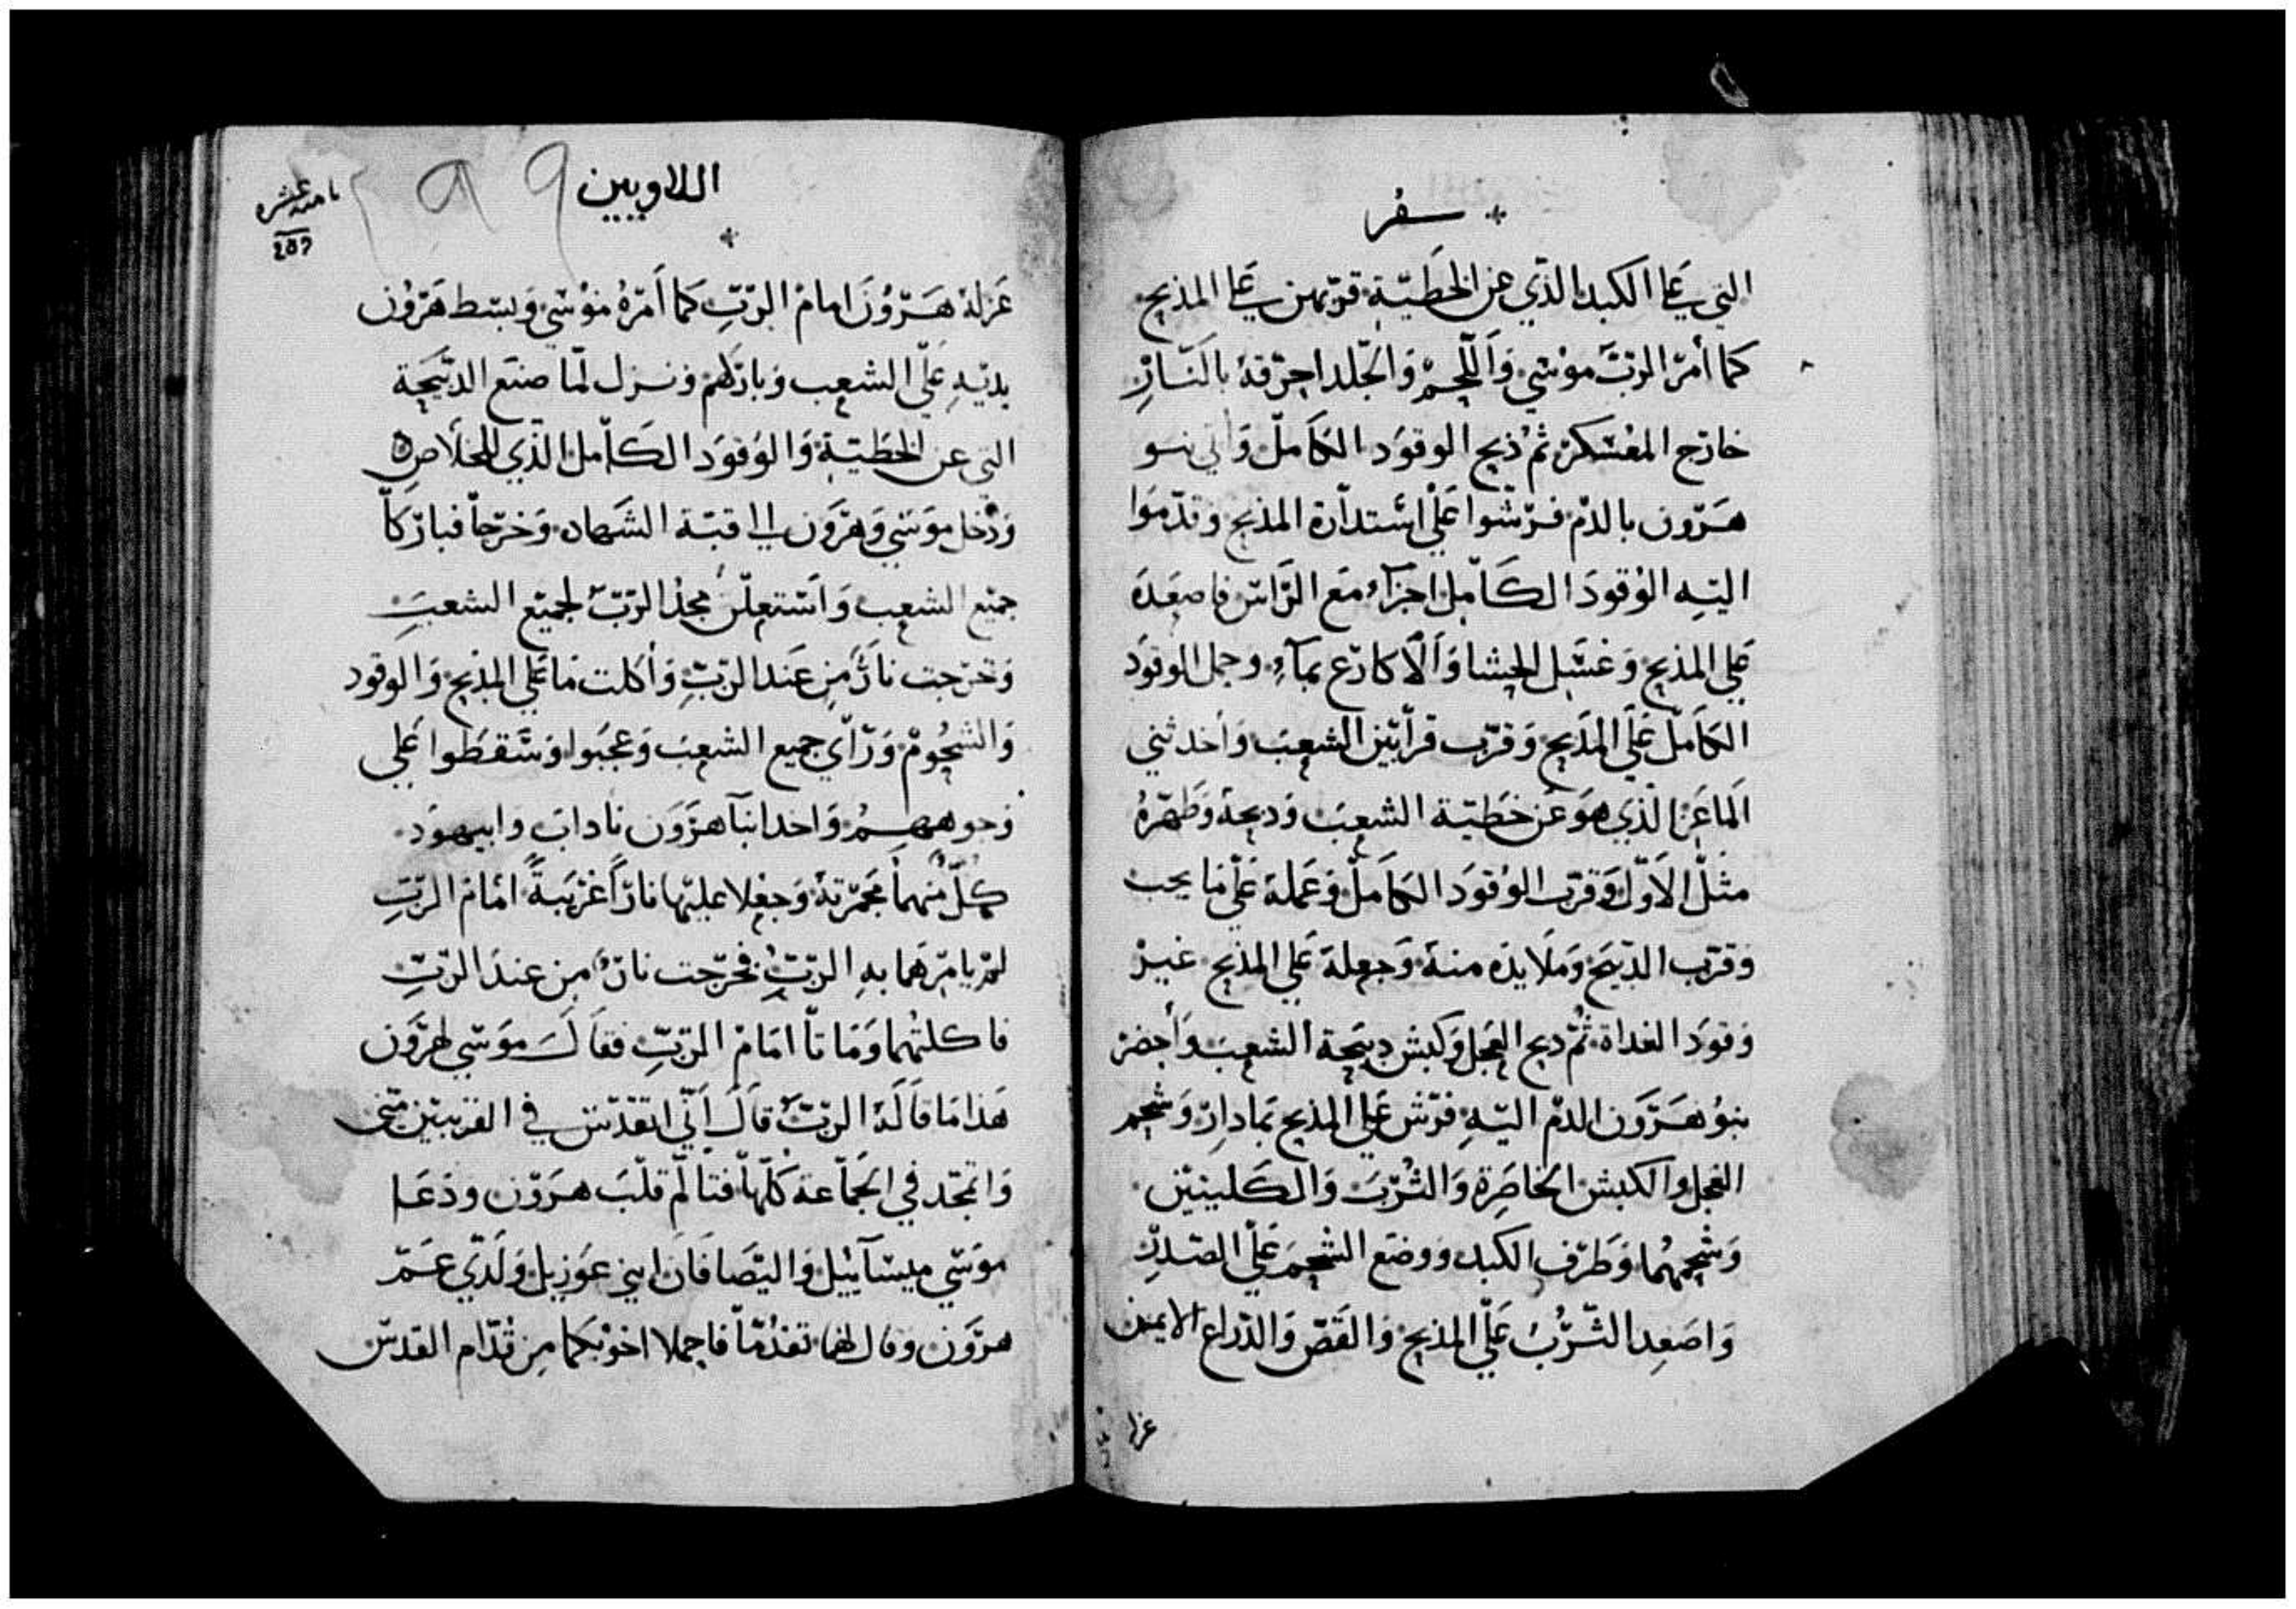 سفر
التي علي الكبد الذي عن الخطية قربهن علي المذبح
كما أمر الرب موسي واللحم والجلد احرقه بالنار
خارج المعسكر ثم ذبح الوقود الكامل واتي بنو
هرون بالدم فرشوا علي استدارة المذبح وقدموا
اليه الوقود الكامل اجزاء مع الراس فاصعده
علي المذبح وغسل الحشا والاكارع بماء وحمل الوقود
الكامل علي المذبح وقرب قرابين الشعب وأخد ثني
الماعز الذي هو عن خطية الشعب ودبحه وطهره
مثل الاول وقرب الوقود الكامل وعمله علي ما يجب
وقرب الدبيح وملا يده منه وجعله علي المذبح غير
وقود الغداة ثم دبح العجل وكبش دبيحة الشعب وأحضر
بنو هرون الدم اليه فرش علي المذبح بمادار وشحم
العجل والكبش الخاصرة والثرب والكليتين
وشحمهما وطرف الكبد ووضع الشحم علي الصدر
واصعد الثرب علي المذبح والقص والدراع الايمن
عزله
اللاويين
ثامنه عشره
عزله هرون امام الرب كما أمره موسي وبسط هرون
يديه علي الشعب وباركهم ونزل لما صنع الدبيحة
التي عن الخطية والوقود الكامل الذي للخلاص
ودخل موسي وهرون الي قبة الشهاده وخرجا فباركا
جميع الشعب واستعلن مجد الرب لجميع الشعب
وخرجت نار من عند الرب وأكلت ما علي المذبح والوقود
والشحوم ورأي جميع الشعب وعجبوا وسقطوا علي
وجوههم واخد ابنا هرون ناداب وابيهود
كل منهما مجمرته وجعلا عليها ناراً غريبةً امام الرب
لم يامرهما به الرب فخرجت نار من عند الرب
فاكلتهما وماتا امام الرب فقال موسي لهرون
هذا ما قاله الرب قال اني اتقدس في القريبين مني
واتمجد في الجماعة كلها فتالم قلب هرون ودعا
موسي ميسائيل واليصافان ابني عوزيل ولدي عم
هرون وقال لهما تقدما فاحملا اخوتكما من قدام القدس